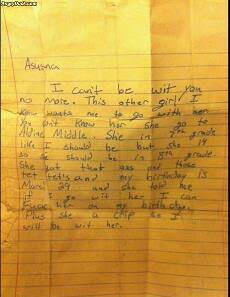 Asyasna
I can't be wit you
no more. This other girl I
know wants me to go with her
You don't know her she go to
Aldine Middle. She in 7th grade
like I should be but she 14
so she should be in 8th grade.
She got that ass and those
tet tet's and my birthday is
March 29 and she told me
if I go wit her I can
Fuck her on my birthday.
Plus she a crip so I
will be wit her.